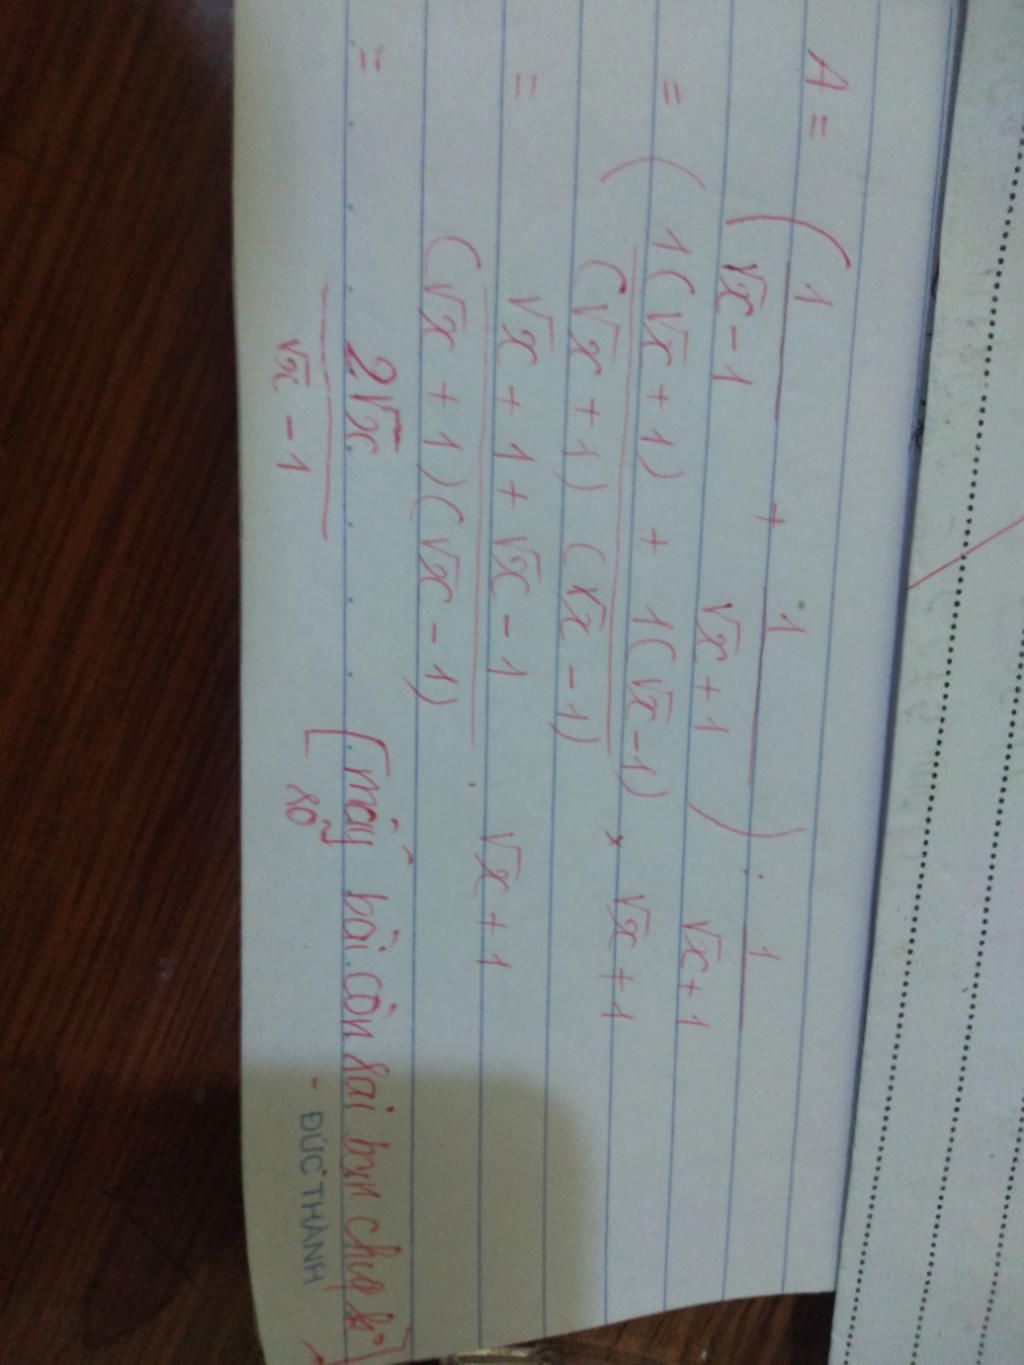 A = ( 1 / √x - 1 + 1 / √x + 1 ) : 1 / √x + 1
= ( 1(√x + 1) + 1(√x - 1) / (√x + 1) (√x - 1) × √x + 1
= √x + 1 + √x - 1 / (√x + 1)(√x - 1) . √x + 1
= 2√x / √x - 1
[mấy bài còn lại bạn chụp
rõ
- ĐỨC THÀNH